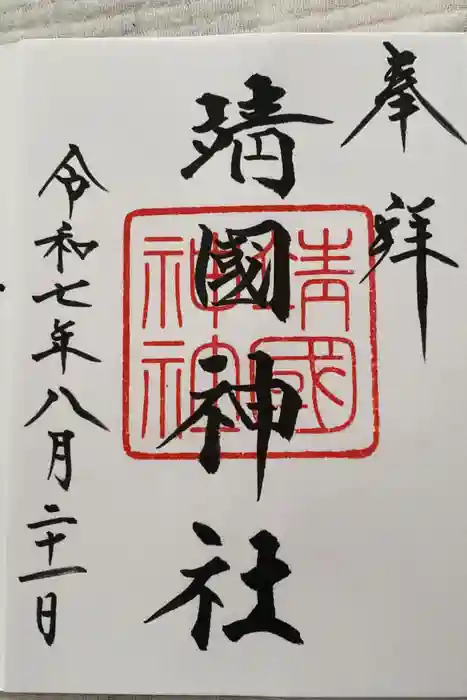 奉拝
靖國神社
靖國
神社
令和七年八月二十一日